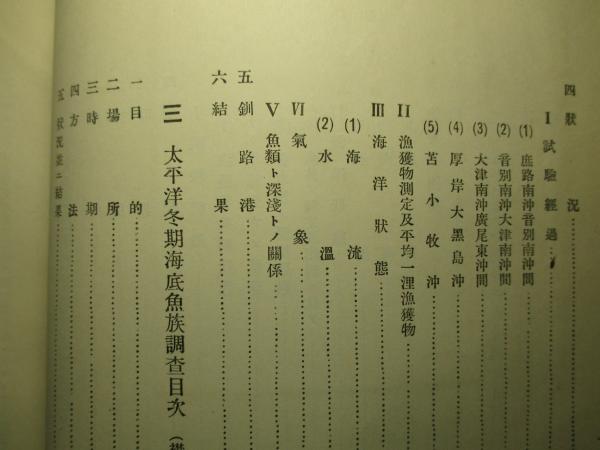 四狀況
I 試驗經過
(1) 庶路南沖音別南沖間
(2) 音別南沖大津南沖間
(3) 大津南沖廣尾東沖間
(4) 厚岸大黑島沖
(5) 苫小牧沖
II 漁獲物測定及平均一浬漁獲物
III 海洋狀態
(1) 海流
(2) 水溫
VI 氣象
V 魚類ト深淺トノ關係
五釧路港
六結果
三 太平洋冬期海底魚族調査目次
一目的
二場所
三時期
四方法
五狀況並ニ結果